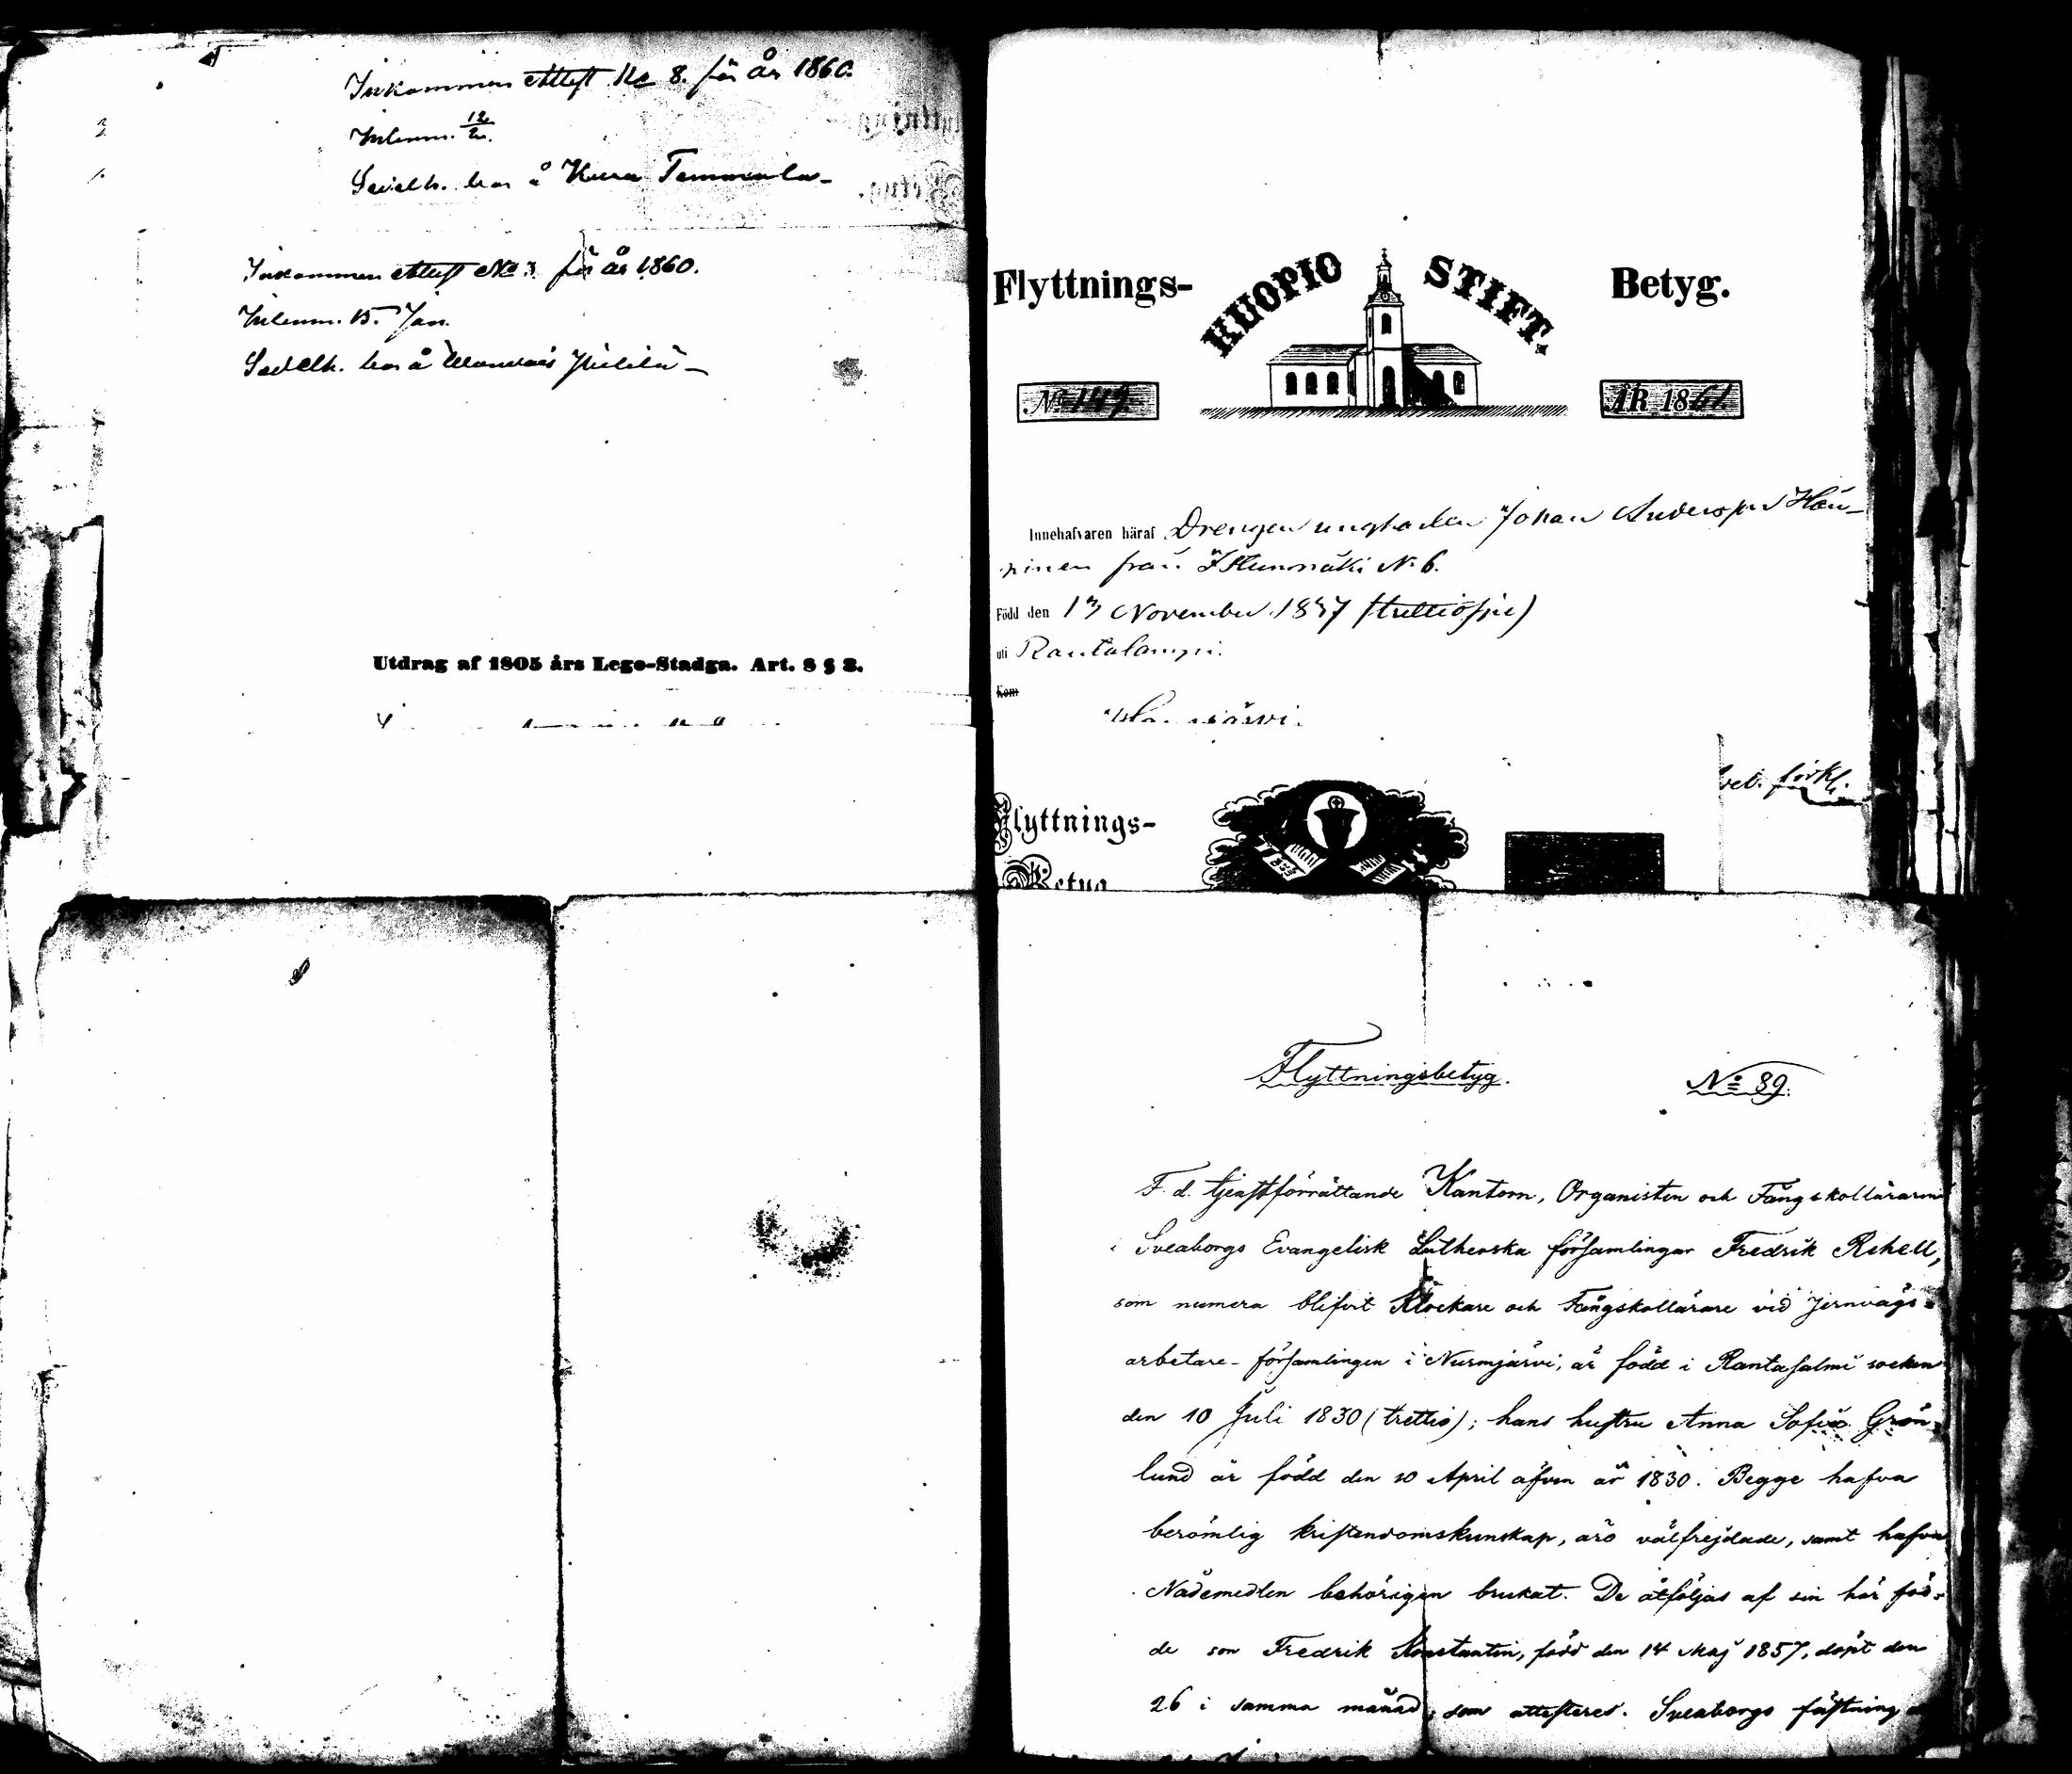 Inkommen Attest No 8. för år 1860.
Inlemn. 12/2.
Sedelh. bor å Kura Tammela -
Inkommen Attest No 3 för år 1860.
Inlemn. 15. Jan.
Sedelh. bor å
Utdrag af 1805 års Lego-Stadga. Art. 8 § 2.
Flyttnings- KUOPIO STIFT. Betyg.
No 149. ÅR 1861
Innehafvaren häraf Drengen ungkarlen Johan Andersson Hän-
ninen från No 6.
Född den 13 November 1837 (trettiosju)
uti Rautalampi.
Kom
vet. förkl.
Flyttnings-
Betyg
Flyttningsbetyg. No 89.
F. d. tjenstförrättande Kantorn, Organisten och Fångskolläraren
i Sveaborgs Evangelisk Lutherska församlingar Fredrik Rehell,
som numera blifvit Klockare och Fångskollärare vid Jernvägs-
arbetare-församlingen i Nurmjärvi, är född i Rantasalmi socken
den 10 Juli 1830 (trettio); hans hustru Anna Sofia Grön-
lund är född den 10 April äfven år 1830. Begge hafva
berömlig kristendomskunskap, äro välfrejdade, samt hafva
Nådemedlen behörigen brukat. De åtföljas af sin här föd-
de son Fredrik Konstantin, född den 14 Maj 1857, döpt den
26 i samma månad; som attesteras. Sveaborgs fästning